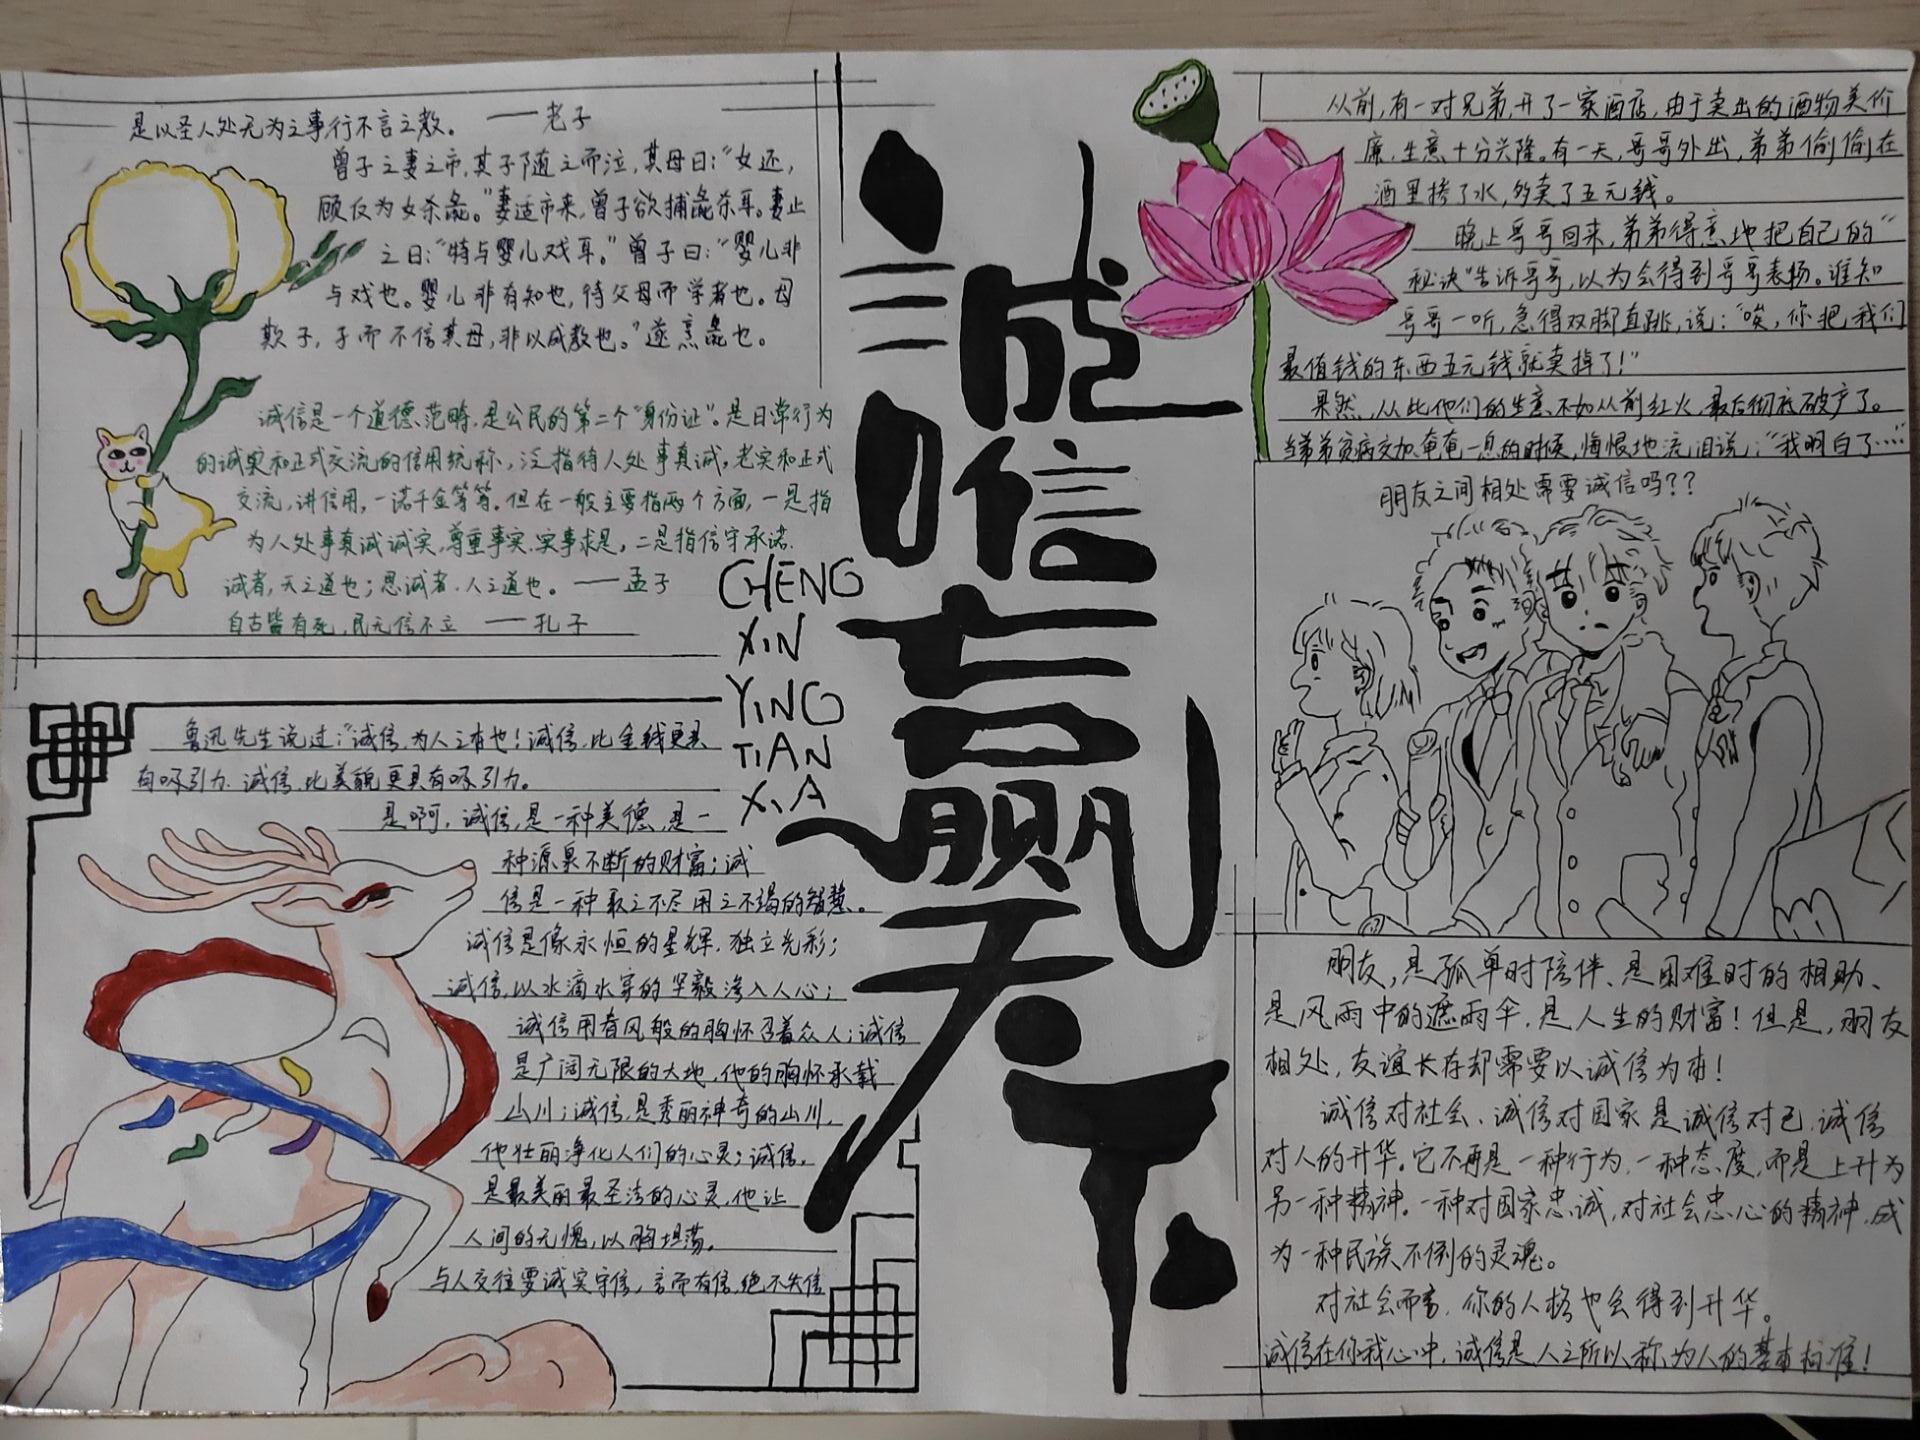 是以圣人处无为之事,行不言之教。 ——老子
曾子之妻之市,其子随之而泣,其母曰:"女还,
顾反为女杀彘。"妻适市来,曾子欲捕彘杀耳。妻止
之曰:"特与婴儿戏耳。"曾子曰:"婴儿非
与戏也。婴儿非有知也,待父母而学者也。母
欺子,子而不信其母,非以成教也。"遂烹彘也。
诚信是一个道德范畴,是公民的第二个"身份证"。是日常行为
的诚实和正式交流的信用统称,泛指待人处事真诚,老实和正式
交流,讲信用,一诺千金等等。但在一般主要指两个方面,一是指
为人处事真诚诚实,尊重事实,实事求是,二是指信守承诺.
诚者,天之道也;思诚者,人之道也。 ——孟子
自古皆有死,民无信不立 ——孔子
鲁迅先生说过:"诚信,为人之本也!诚信,比金钱更具
有吸引力.诚信,比美貌更具有吸引力。
是啊,诚信,是一种美德,是一
种源泉不断的财富;诚
信是一种取之不尽用之不竭的智慧。
诚信是像永恒的星辉,独立光彩;
诚信,以水滴水穿的坚毅渗入人心;
诚信用春风般的胸怀召着众人;诚信
是广阔无限的大地,他的胸怀承载
山川;诚信,是秀丽神奇的山川,
他壮丽净化人们的心灵;诚信,
是最美丽最圣洁的心灵,他让
人间的无愧,以胸坦荡。
与人交往要诚实守信,言而有信,绝不失信
诚
信
赢
天
下
CHENG
XIN
YING
TIAN
XIA
从前,有一对兄弟,开了一家酒店,由于卖出的酒物美价
廉,生意十分兴隆。有一天,哥哥外出,弟弟偷偷在
酒里掺了水,多卖了五元钱。
晚上哥哥回来,弟弟得意地把自己的"
秘诀"告诉哥哥,以为会得到哥哥表扬。谁知
哥哥一听,急得双脚直跳,说:"唉,你把我们
最值钱的东西五元钱就卖掉了!"
果然,从此他们的生意不如从前红火,最后彻底破产了。
当弟弟贫病交加,奄奄一息的时候,悔恨地流泪说:"我明白了……"
朋友之间相处需要诚信吗??
朋友,是孤单时陪伴、是困难时的相助、
是风雨中的遮雨伞,是人生的财富!但是,朋友
相处,友谊长存却需要以诚信为本!
诚信对社会、诚信对国家是诚信对己,诚信
对人的升华。它不再是一种行为,一种态度,而是上升为
另一种精神。一种对国家忠诚,对社会忠心的精神,成
为一种民族不倒的灵魂。
对社会而言,你的人格也会得到升华。
诚信在你我心中,诚信是人之所以称为人的基本标准!